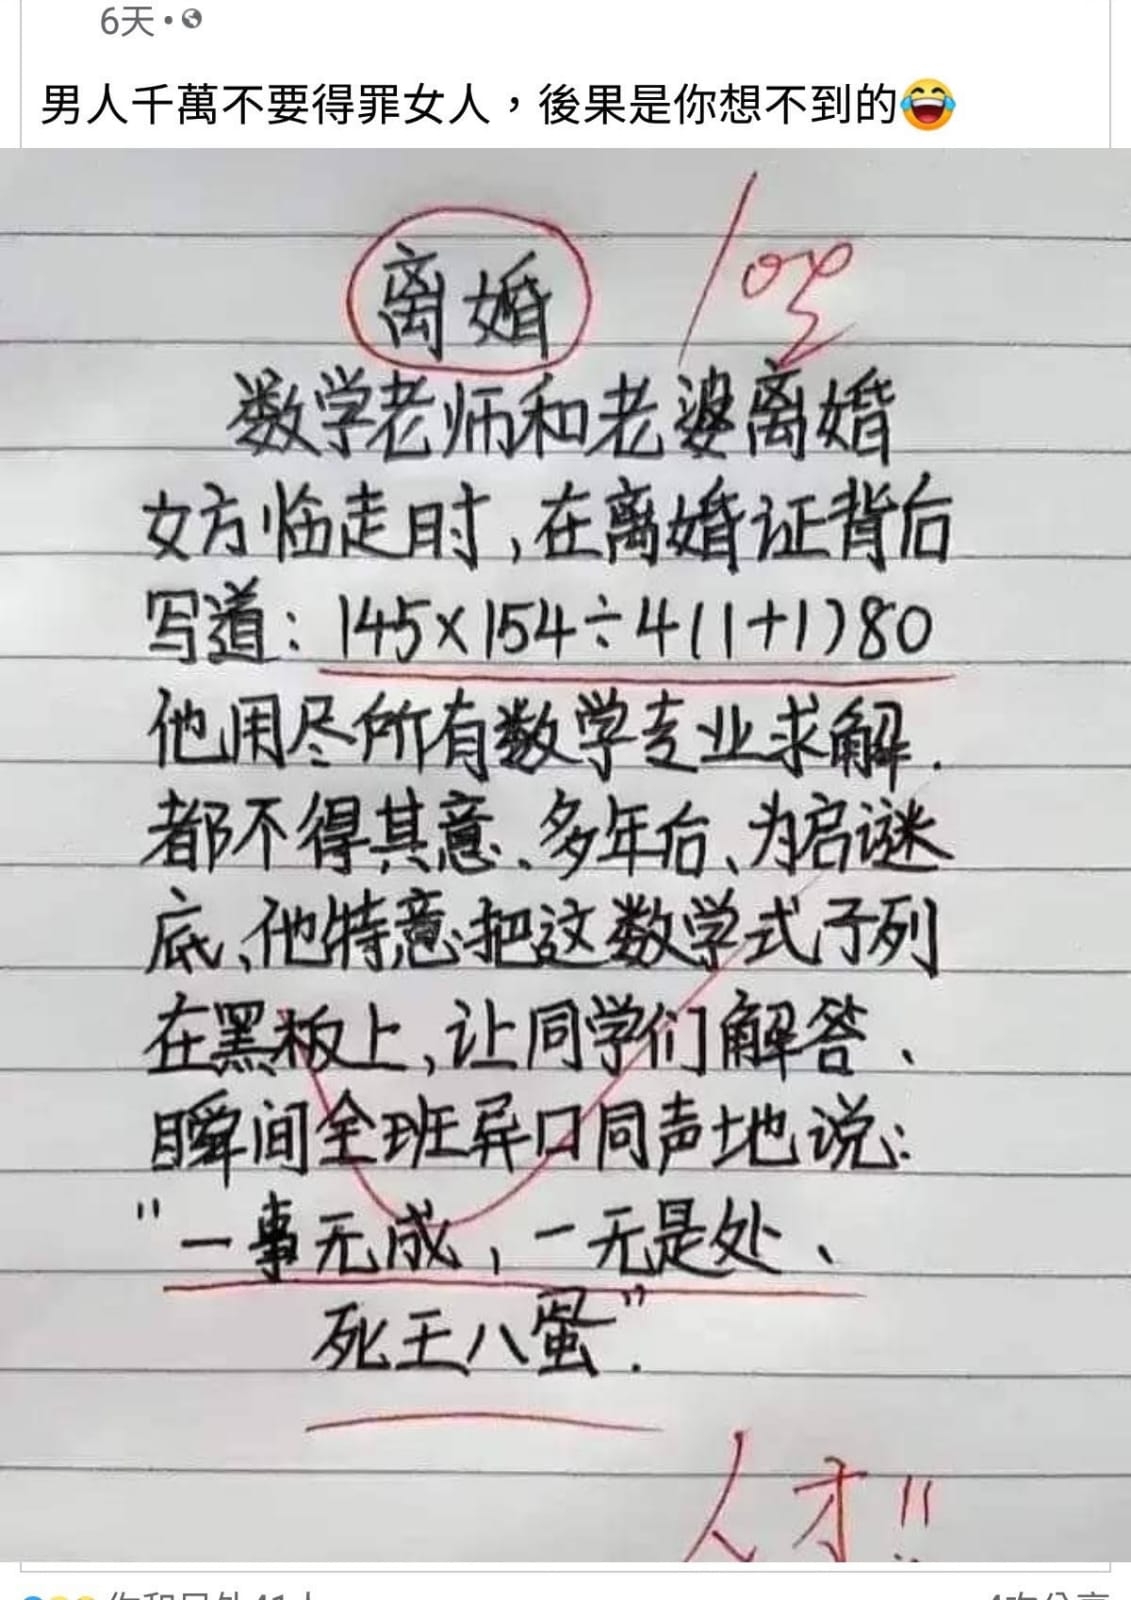 6天
男人千萬不要得罪女人，後果是你想不到的😂
离婚
数学老师和老婆离婚
女方临走时,在离婚证背后
写道:145×154÷4(1+1)80
他用尽所有数学专业求解.
都不得其意、多年后、为启谜
底、他特意把这数学式子列
在黑板上,让同学们解答、
瞬间全班异口同声地说:
"一事无成,一无是处、
死王八蛋".
人才!!